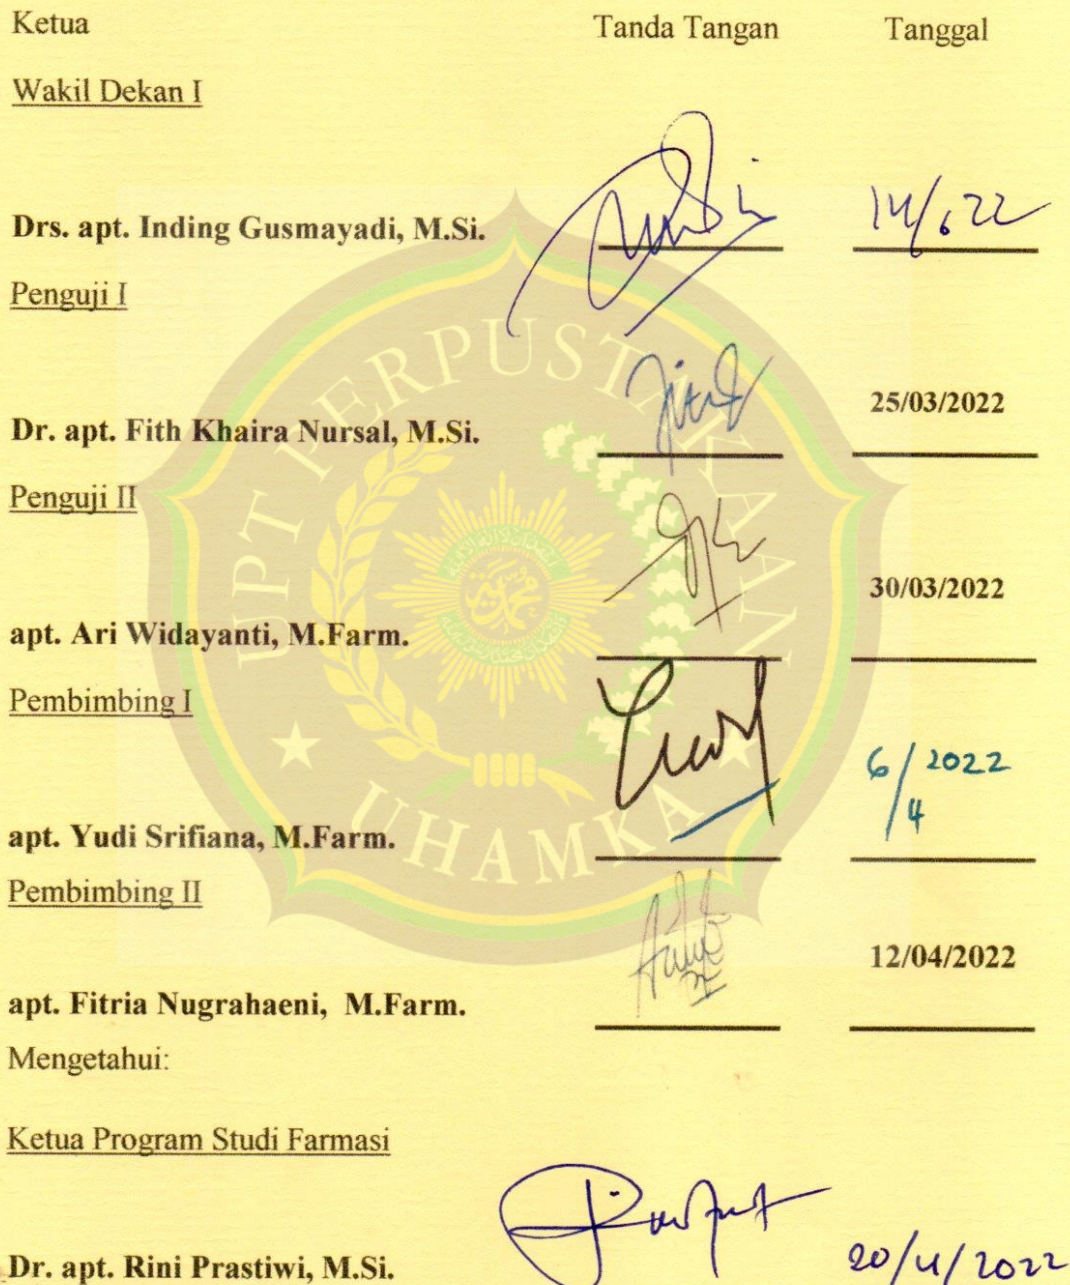 Ketua Tanda Tangan Tanggal
Wakil Dekan I
Drs. apt. Inding Gusmayadi, M.Si. 14/6 22
Penguji I
25/03/2022
Dr. apt. Fith Khaira Nursal, M.Si.
Penguji II
30/03/2022
apt. Ari Widayanti, M.Farm.
Pembimbing I
6/4 2022
apt. Yudi Srifiana, M.Farm.
Pembimbing II
12/04/2022
apt. Fitria Nugrahaeni, M.Farm.
Mengetahui:
Ketua Program Studi Farmasi
Dr. apt. Rini Prastiwi, M.Si. 20/4/2022
UPT PERPUSTAKAAN
UHAMKA